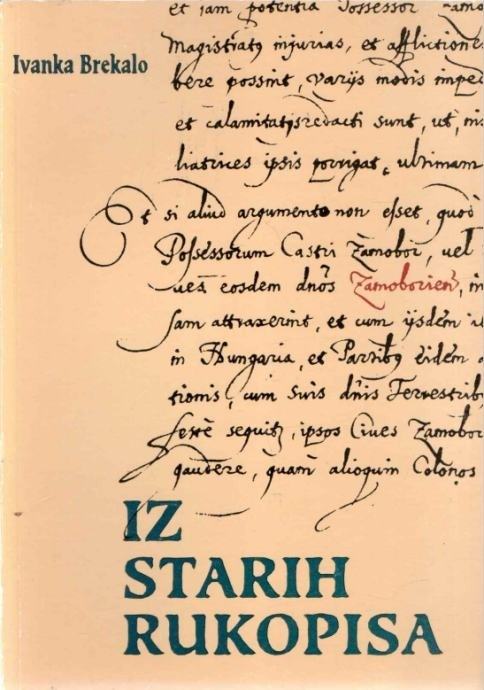 et iam potentia Possessor
Ivanka Brekalo
Magistratq injurias, et afflictione
bere possint, varijs modis imped
et calamitatis redacti sunt, ut, nis
liatrices ipsis porrigat, ultimam
Et si aliud argumento non esset, quod
Possessorum Castri Zamobor, vel
eosdem dnos Zamoborien, in
sam attraxerint, et cum ijsdem
in Hungaria, et Partibq eidem
tionis, cum suis dnis Terrestrib
sequitq, ipsos Ciues Zamobor
gaudere, quam alioquin Colonos
IZ
STARIH
RUKOPISA